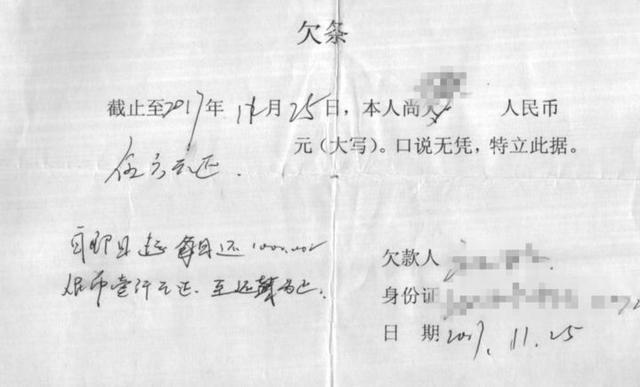 欠条
截止至2017年11月25日，本人尚欠 人民币
伍万元正. 元（大写）。口说无凭，特立此据。
自即日起 每月还 1000.00
人民币壹仟元正. 至还清为止.
欠款人
身份证
日 期 2017. 11. 25